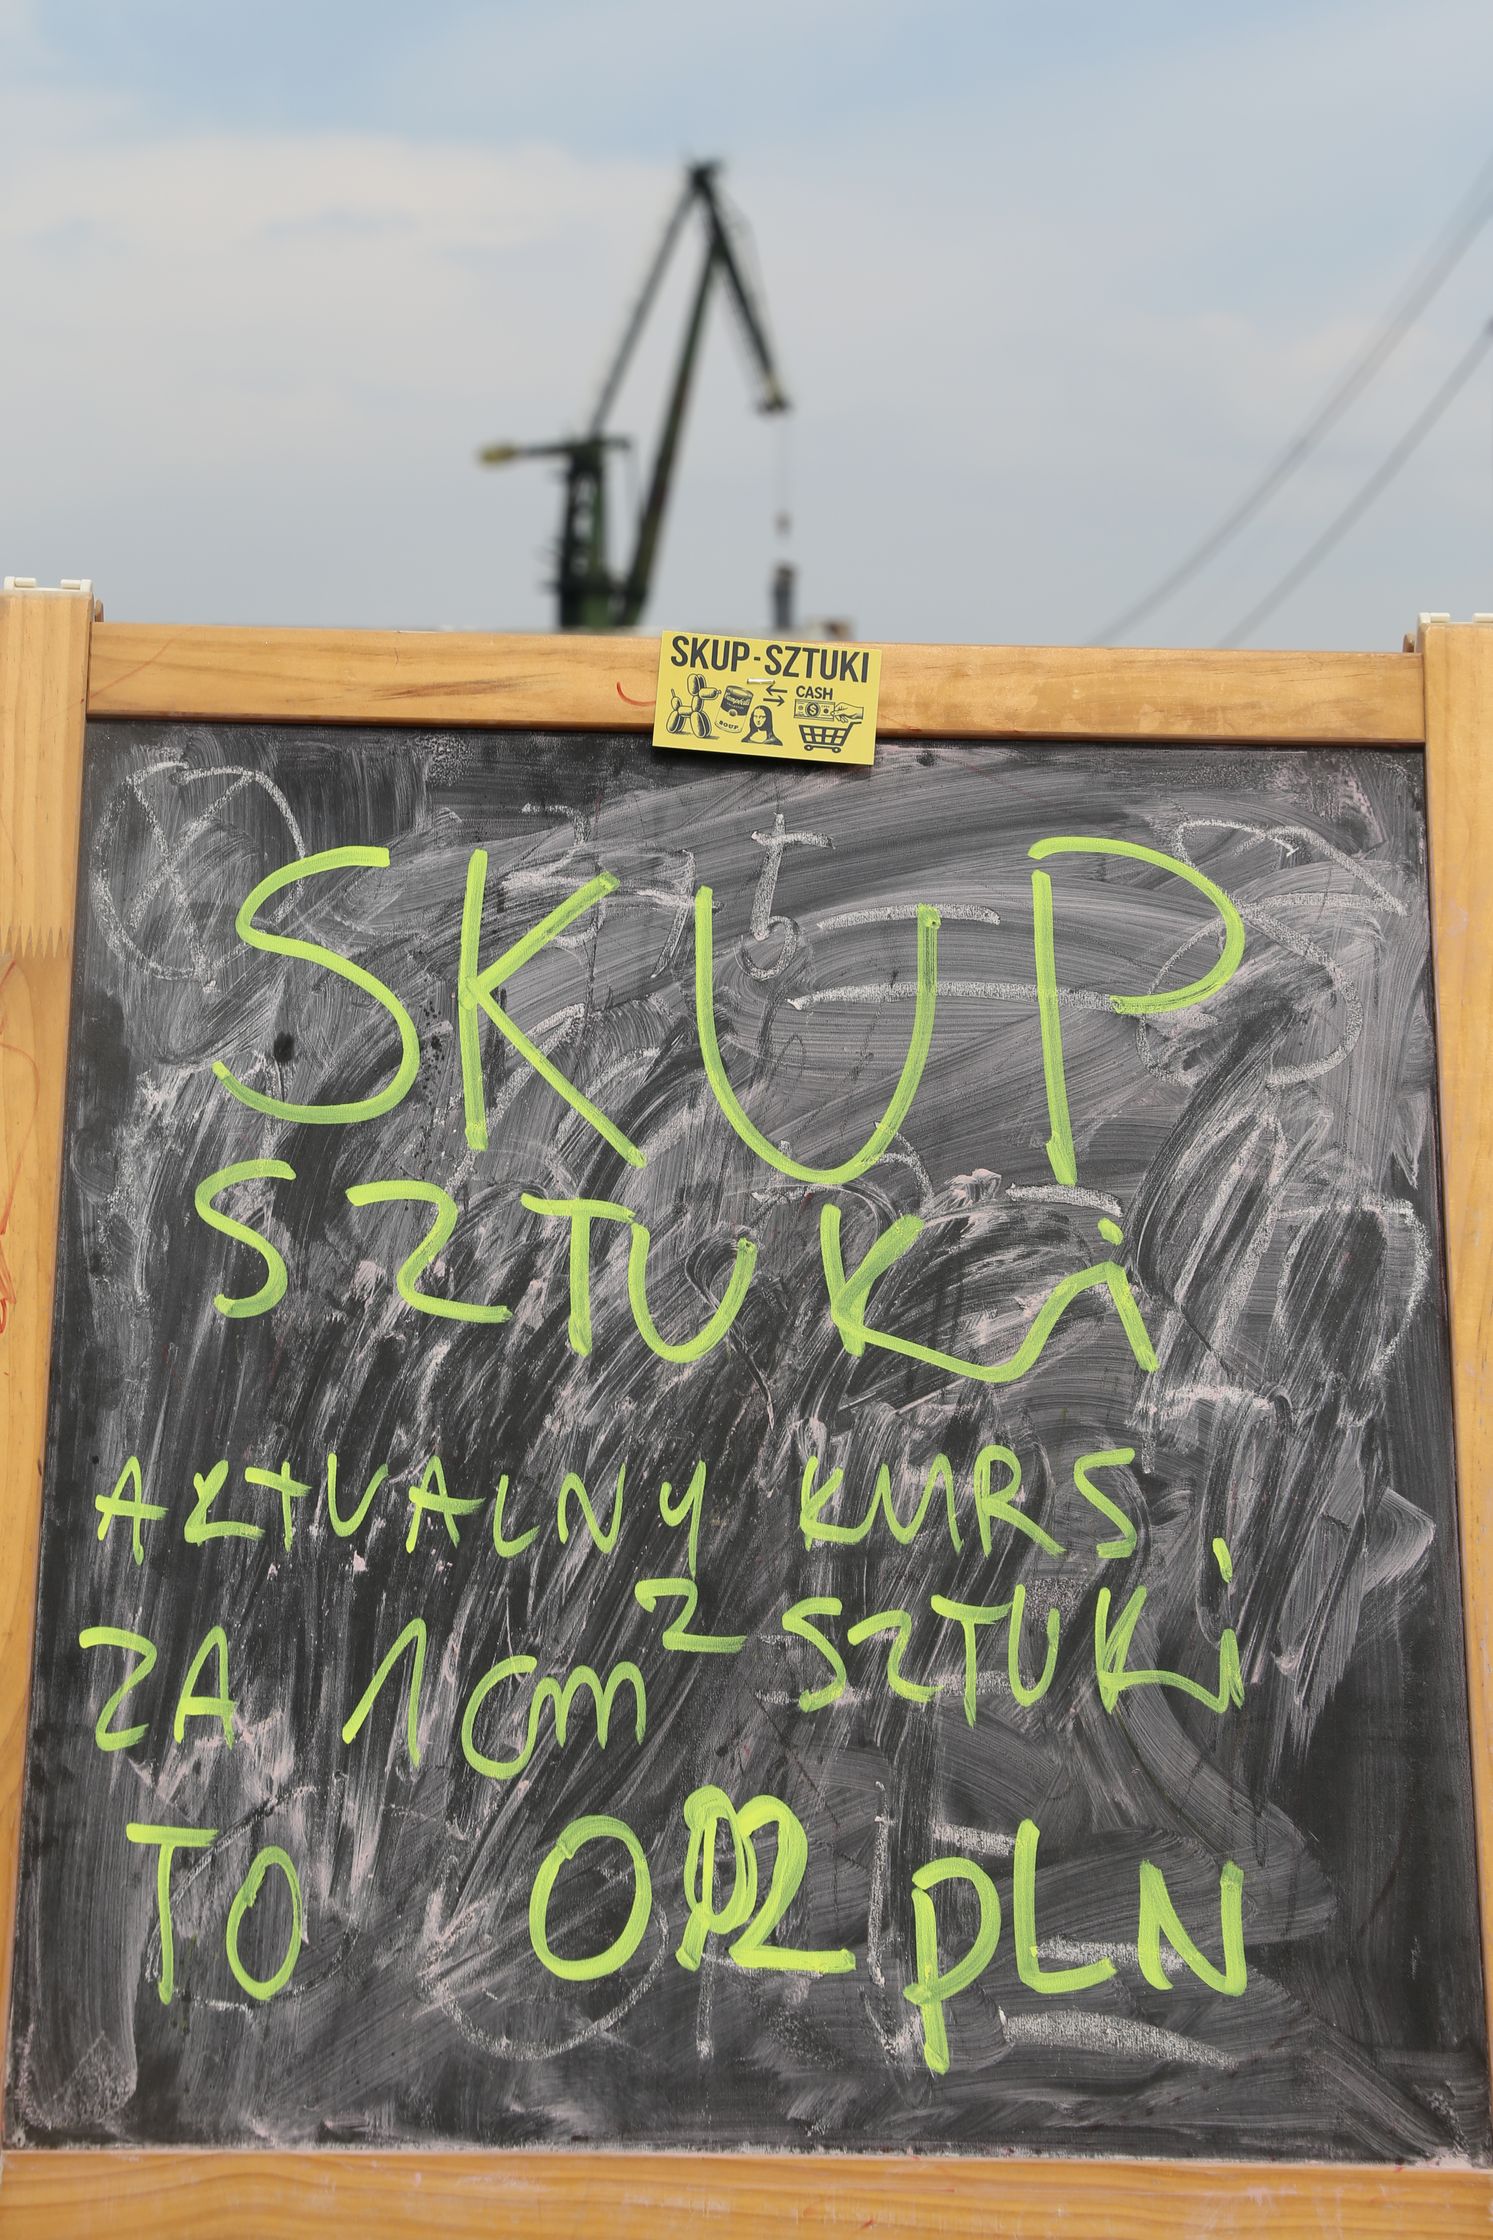 SKUP-SZTUKI
CASH
SOUP
SKUP
SZTUKi
AKTUALNY KURS
ZA 1cm² SZTUKi
TO PLN